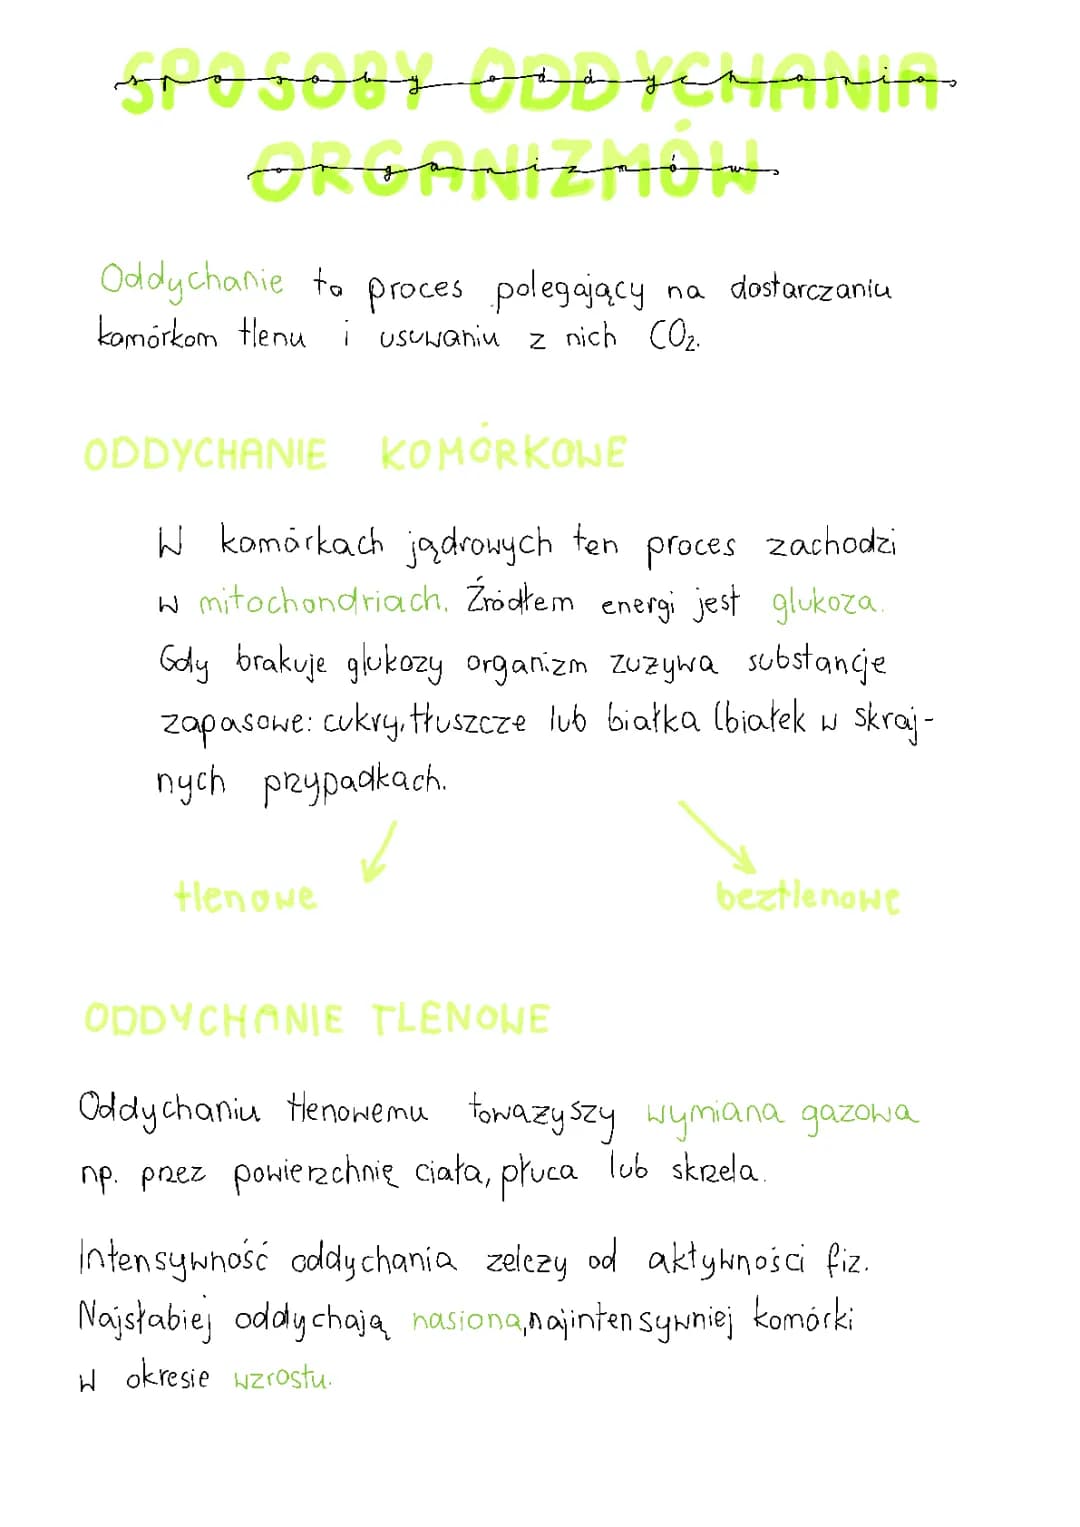 SPOSOBY ODDYCHANIA
sposoby oddychania
ORGANIZMÓW
organizmów
Oddychanie to proces polegający na dostarczaniu
komórkom tlenu i usuwaniu z nich CO₂.
ODDYCHANIE KOMÓRKOWE
W komórkach jądrowych ten proces zachodzi
w mitochondriach. Źródłem energi jest glukoza.
Gdy brakuje glukozy organizm zuzywa substancje
zapasowe: cukry, tłuszcze lub białka (białek w skraj-
nych przypadkach.
tlenowe
beztlenowe
ODDYCHANIE TLENOWE
Oddychaniu tlenowemu towazyszy wymiana gazowa
np. przez powierzchnię ciała, płuca lub skrzela.
Intensywność oddychania zelezy od aktywności fiz.
Najsłabiej oddychają nasiona, najintensywniej komórki
w okresie wzrostu.